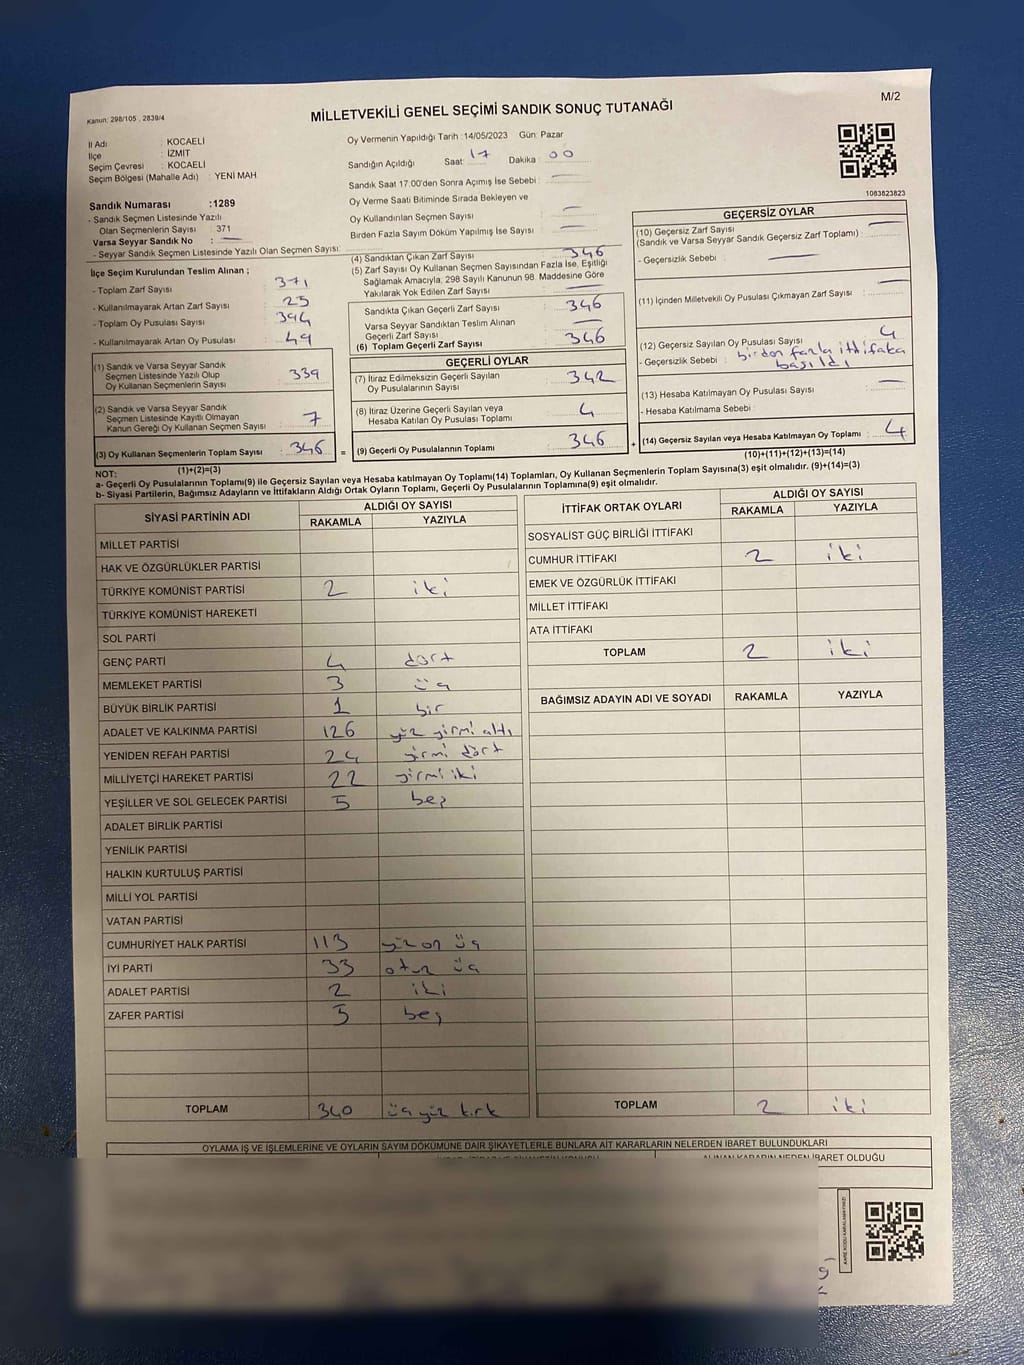 M/2
Kanun: 298/105 , 2839/4
MİLLETVEKİLİ GENEL SEÇİMİ SANDIK SONUÇ TUTANAĞI
İl Adı : KOCAELİ
İlçe : İZMİT
Seçim Çevresi : KOCAELİ
Seçim Bölgesi (Mahalle Adı) : YENİ MAH
Sandık Numarası :1289
- Sandık Seçmen Listesinde Yazılı
Olan Seçmenlerin Sayısı : 371
Varsa Seyyar Sandık No : —
- Seyyar Sandık Seçmen Listesinde Yazılı Olan Seçmen Sayısı:
İlçe Seçim Kurulundan Teslim Alınan ;
- Toplam Zarf Sayısı 371
- Kullanılmayarak Artan Zarf Sayısı 25
- Toplam Oy Pusulası Sayısı 394
- Kullanılmayarak Artan Oy Pusulası 49
(1) Sandık ve Varsa Seyyar Sandık
Seçmen Listesinde Yazılı Olup
Oy Kullanan Seçmenlerin Sayısı 339
(2) Sandık ve Varsa Seyyar Sandık
Seçmen Listesinde Kayıtlı Olmayan
Kanun Gereği Oy Kullanan Seçmen Sayısı 7
(3) Oy Kullanan Seçmenlerin Toplam Sayısı 346
(1)+(2)=(3)
Oy Vermenin Yapıldığı Tarih :14/05/2023 Gün: Pazar
Sandığın Açıldığı Saat: 17 Dakika : 00
Sandık Saat 17:00'den Sonra Açımış İse Sebebi : —
Oy Verme Saati Bitiminde Sırada Bekleyen ve
Oy Kullandırılan Seçmen Sayısı : —
Birden Fazla Sayım Döküm Yapılmış İse Sayısı : —
(4) Sandıktan Çıkan Zarf Sayısı 346
(5) Zarf Sayısı Oy Kullanan Seçmen Sayısından Fazla İse, Eşitliği
Sağlamak Amacıyla, 298 Sayılı Kanunun 98. Maddesine Göre
Yakılarak Yok Edilen Zarf Sayısı : —
Sandıkta Çıkan Geçerli Zarf Sayısı : 346
Varsa Seyyar Sandıktan Teslim Alınan
Geçerli Zarf Sayısı : —
(6) Toplam Geçerli Zarf Sayısı : 346
GEÇERLİ OYLAR
(7) İtiraz Edilmeksizin Geçerli Sayılan
Oy Pusulalarının Sayısı : 342
(8) İtiraz Üzerine Geçerli Sayılan veya
Hesaba Katılan Oy Pusulası Toplamı : 4
= (9) Geçerli Oy Pusulalarının Toplamı : 346 +
1083823823
GEÇERSİZ OYLAR
(10) Geçersiz Zarf Sayısı
(Sandık ve Varsa Seyyar Sandık Geçersiz Zarf Toplamı) : —
- Geçersizlik Sebebi : —
(11) İçinden Milletvekili Oy Pusulası Çıkmayan Zarf Sayısı : —
(12) Geçersiz Sayılan Oy Pusulası Sayısı : 4
- Geçersizlik Sebebi : birden fazla ittifaka
basıldı
(13) Hesaba Katılmayan Oy Pusulası Sayısı : —
- Hesaba Katılmama Sebebi :
(14) Geçersiz Sayılan veya Hesaba Katılmayan Oy Toplamı : 4
(10)+(11)+(12)+(13)=(14)
NOT:
a- Geçerli Oy Pusulalarının Toplamı(9) ile Geçersiz Sayılan veya Hesaba katılmayan Oy Toplamı(14) Toplamları, Oy Kullanan Seçmenlerin Toplam Sayısına(3) eşit olmalıdır. (9)+(14)=(3)
b- Siyasi Partilerin, Bağımsız Adayların ve İttifakların Aldığı Ortak Oyların Toplamı, Geçerli Oy Pusulalarının Toplamına(9) eşit olmalıdır.
SİYASİ PARTİNİN ADI ALDIĞI OY SAYISI
RAKAMLA YAZIYLA
MİLLET PARTİSİ
HAK VE ÖZGÜRLÜKLER PARTİSİ
TÜRKİYE KOMÜNİST PARTİSİ 2 iki
TÜRKİYE KOMÜNİST HAREKETİ
SOL PARTİ
GENÇ PARTİ 4 dört
MEMLEKET PARTİSİ 3 üç
BÜYÜK BİRLİK PARTİSİ 1 bir
ADALET VE KALKINMA PARTİSİ 126 yüz yirmi altı
YENİDEN REFAH PARTİSİ 24 yirmi dört
MİLLİYETÇİ HAREKET PARTİSİ 22 yirmi iki
YEŞİLLER VE SOL GELECEK PARTİSİ 5 beş
ADALET BİRLİK PARTİSİ
YENİLİK PARTİSİ
HALKIN KURTULUŞ PARTİSİ
MİLLİ YOL PARTİSİ
VATAN PARTİSİ
CUMHURİYET HALK PARTİSİ 113 yüz on üç
İYİ PARTİ 33 otuz üç
ADALET PARTİSİ 2 iki
ZAFER PARTİSİ 5 beş
TOPLAM 340 üç yüz kırk
İTTİFAK ORTAK OYLARI ALDIĞI OY SAYISI
RAKAMLA YAZIYLA
SOSYALİST GÜÇ BİRLİĞİ İTTİFAKI
CUMHUR İTTİFAKI 2 iki
EMEK VE ÖZGÜRLÜK İTTİFAKI
MİLLET İTTİFAKI
ATA İTTİFAKI
TOPLAM 2 iki
BAĞIMSIZ ADAYIN ADI VE SOYADI RAKAMLA YAZIYLA
TOPLAM 2 iki
OYLAMA İŞ VE İŞLEMLERİNE VE OYLARIN SAYIM DÖKÜMÜNE DAİR ŞİKAYETLERLE BUNLARA AİT KARARLARIN NELERDEN İBARET BULUNDUKLARI
ALINAN KARARIN NEDEN İBARET OLDUĞU